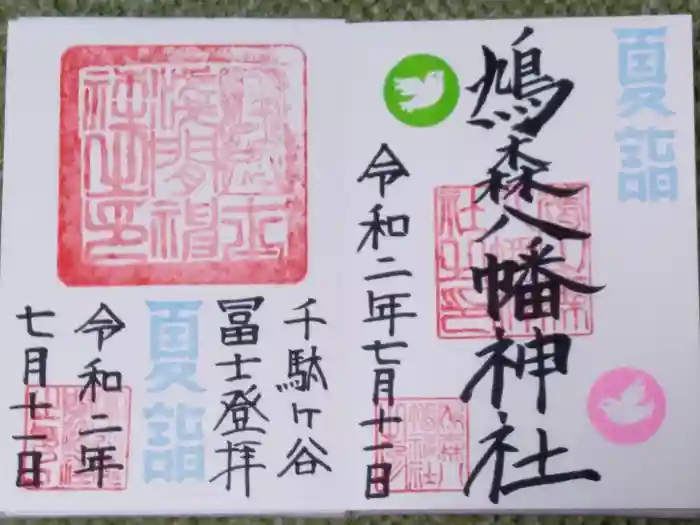 夏詣
鳩森八幡神社
令和二年七月十一日
千駄ヶ谷
冨士登拝
夏詣
令和二年
七月十一日